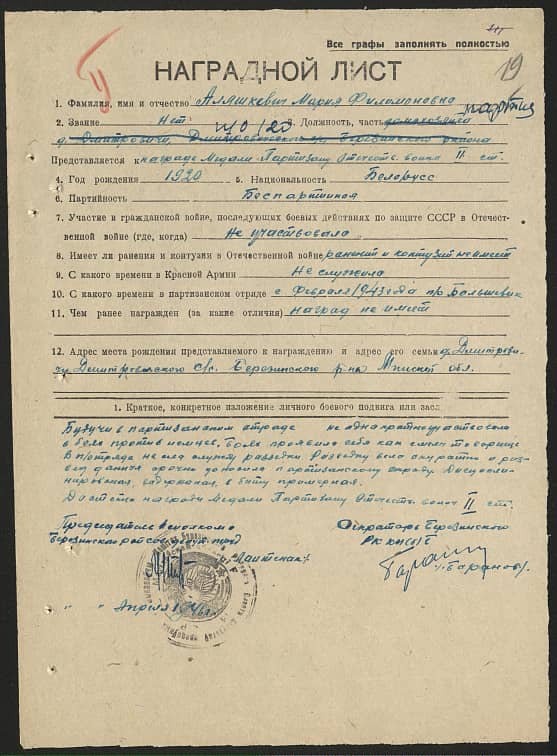 Все графы заполнять полностью
19
НАГРАДНОЙ ЛИСТ
1. Фамилия, имя и отчество Аляшкевич Мария Филомоновна
2. Звание Нет 3. Должность, часть домохозяйка
д. Дмитровичи, Березинского района
Представляется к награде Медали Партизану Отечеств. войны II ст.
4. Год рождения 1920 5. Национальность Белорусс
6. Партийность Беспартийная
7. Участие и гражданской войне, последующих боевых действиях по защите СССР в Отечест-
венной войне (где, когда) Не участвовала
8. Имеет ли ранения и контузии в Отечественной войне ранений и контузий не имеет
9. С какого времени в Красной Армии Не служила
10. С какого времени в партизанском отряде с февраля 1943 года п/о Большевик
11. Чем ранее награжден (за какие отличия) наград не имеет
12. Адрес места рождения представляемого к награждению и адрес его семьи д. Дмитрови-
чи, Дмитровичского с/с. Березинского р-на Минской обл.
1. Краткое, конкретное изложение личного боевого подвига или засл
Будучи в партизанском отряде неоднократно участвовала
в боях против немцев,
В п/отряде несла службу разведки
партизанскому отряду. Дисципли-
нированая, выдержаная, в быту примерная.
Достойна награды Медали Партизану Отечеств. войны II ст.
Председатель исполкома
Березинского рай
Секретарь Березинского
РК КП(б)Б
/Баранов/
" " Апреля 194 г.